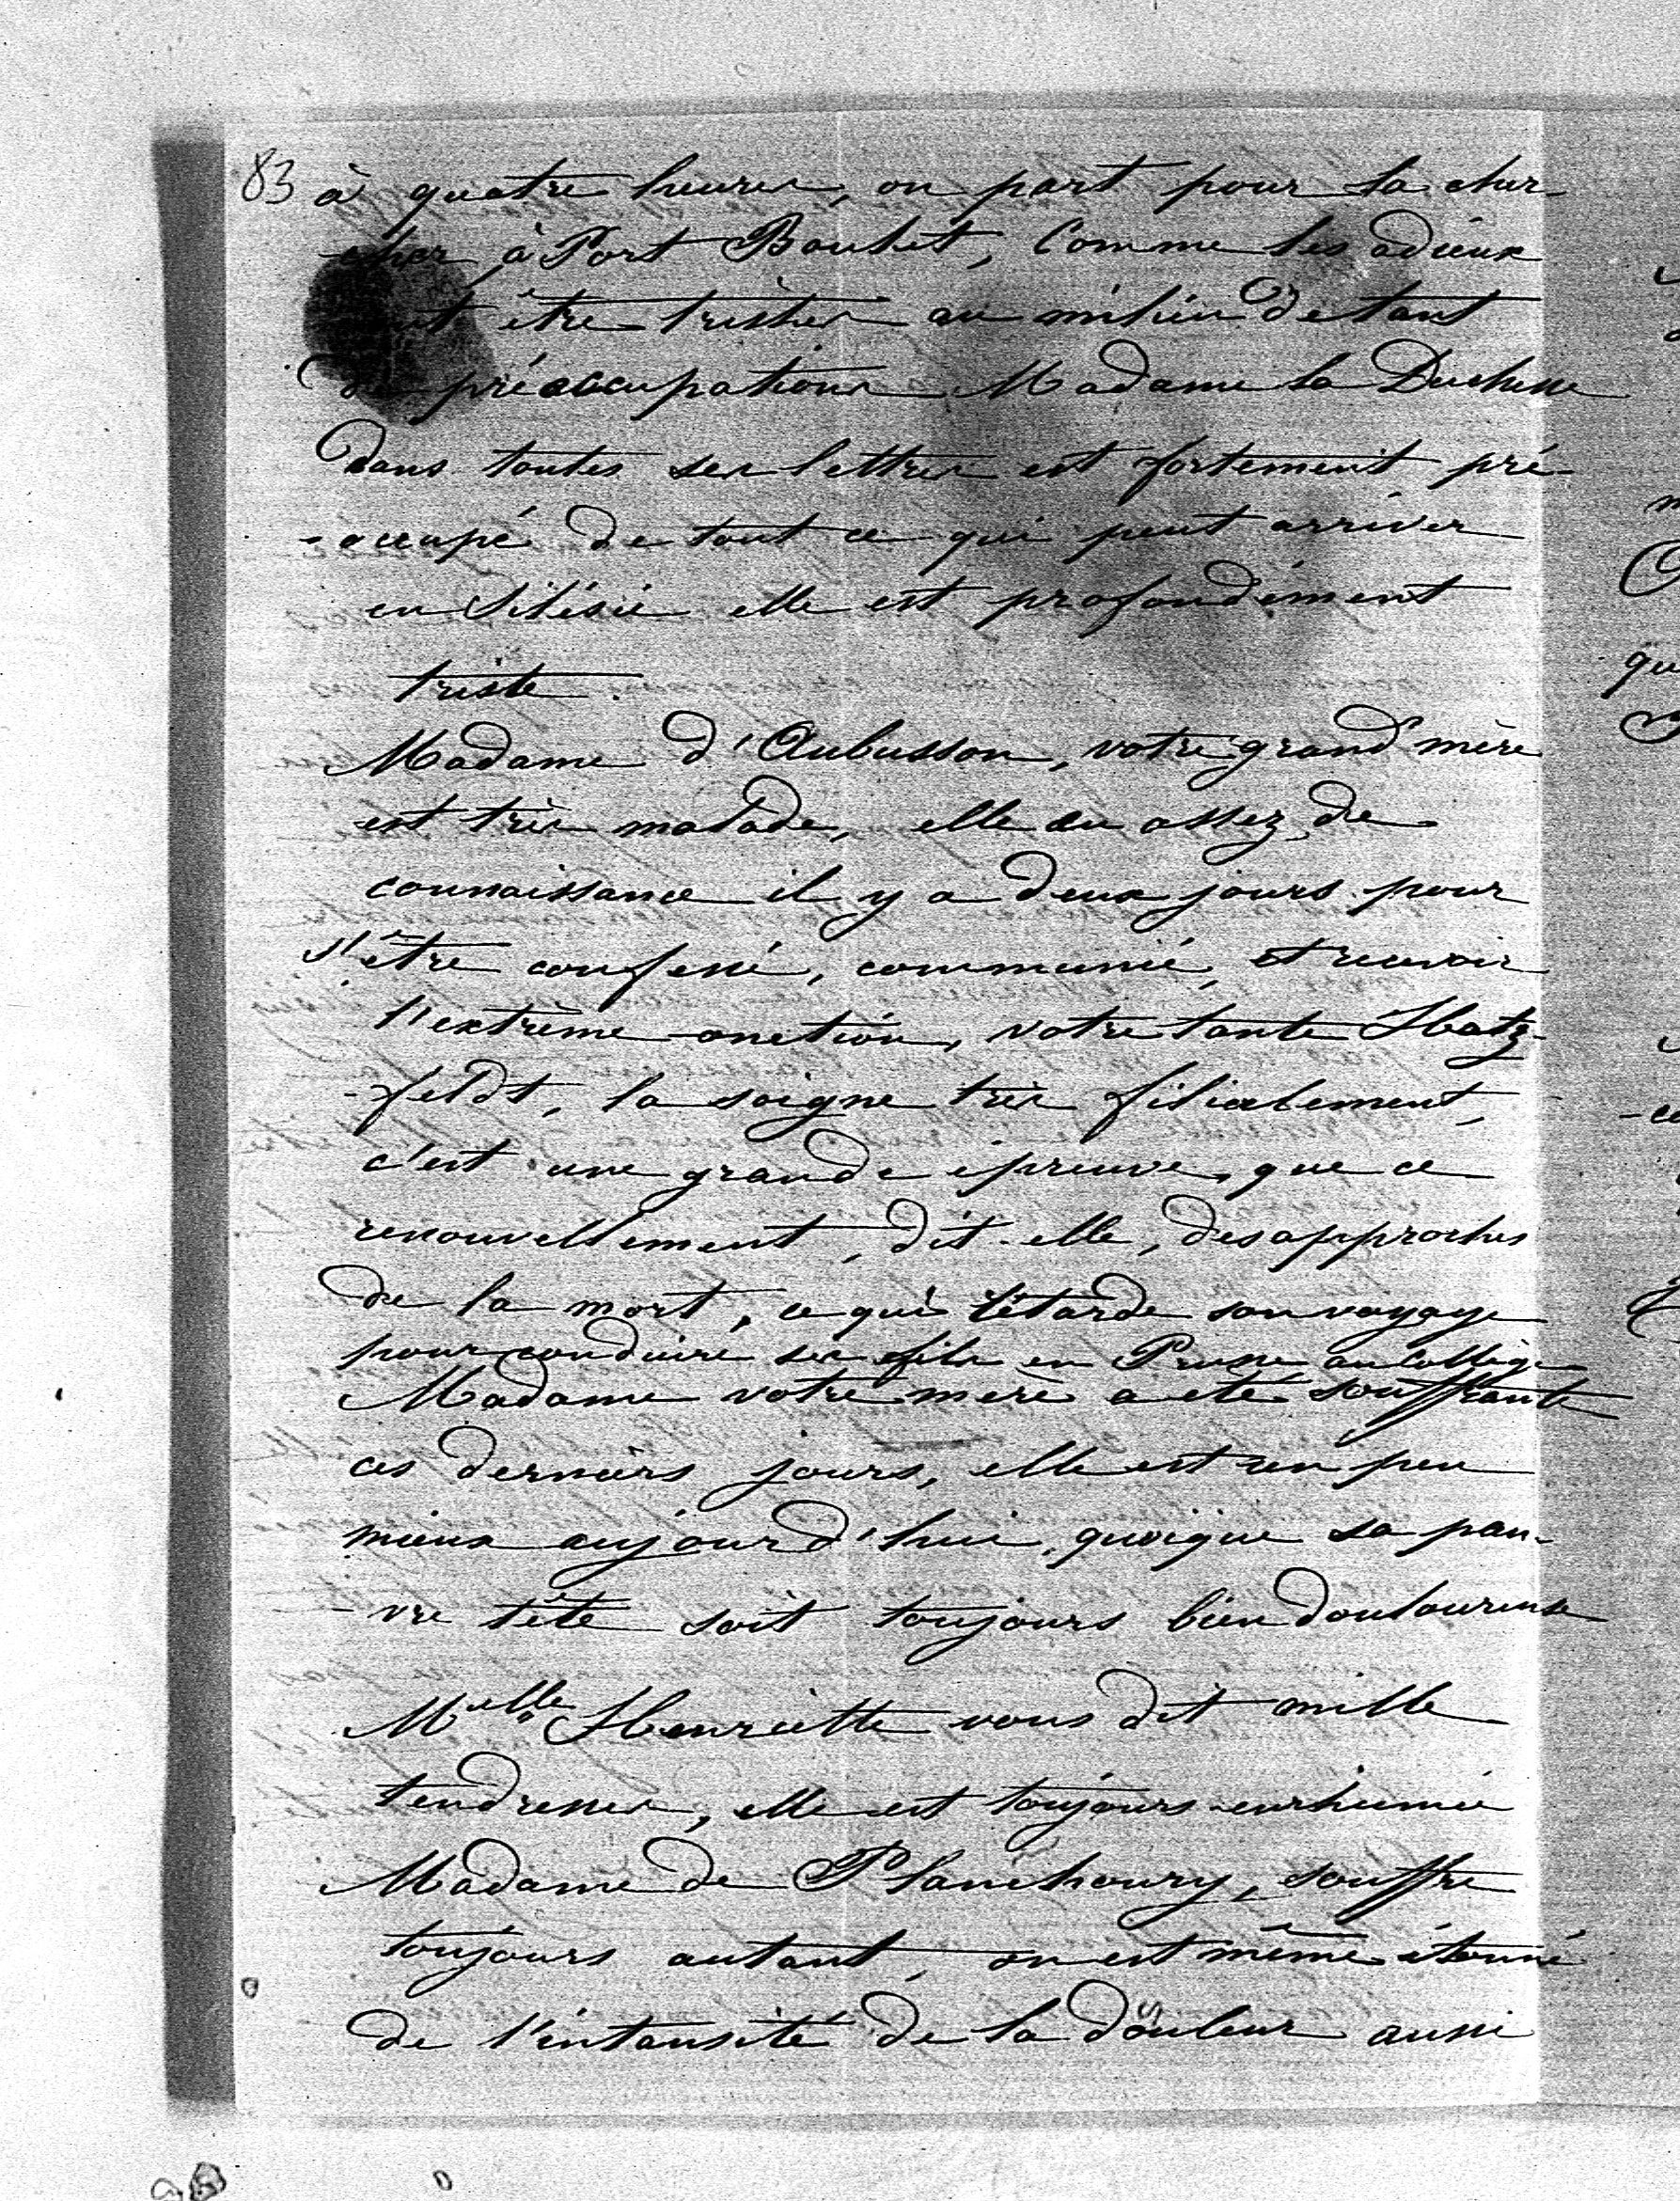 83 à quatre heures, on part pour la cher
-cher à Port Boulet, Comme les adieux
vont être tristes au milieu de tant
de préoccupations Madame la Duchesse
dans toutes ses lettres est fortement pré-
-occupé de tout ce qui peut arriver
en Silésie elle est profondément
triste.
Madame d'Aubusson, votre grand'mère
est très malade, elle eu assez de
connaissance il y a deux jours pour
s'être confessé, communié, et recevoir
l'extrème onction, votre tante Hatz-
-feldt, la soigne très filialement,
c'est une grande épreuve, que ce
renouvellement, dit-elle, des approches
de la mort, ce qui retarde son voyage
pour conduire ses fils en Prusse au Collège
Madame votre mère a été souffrante
ces derniers jours, elle est un peu
mieux aujourd'hui, quoique sa pau-
-vre tête soit toujours bien douloureuse
Melle Henriette vous dit mille
tendresses, elle est toujours enrhumée
Madame de Planchoury, souffre
toujours autant, on est même étonné
de l'intansité de la douleur aussi